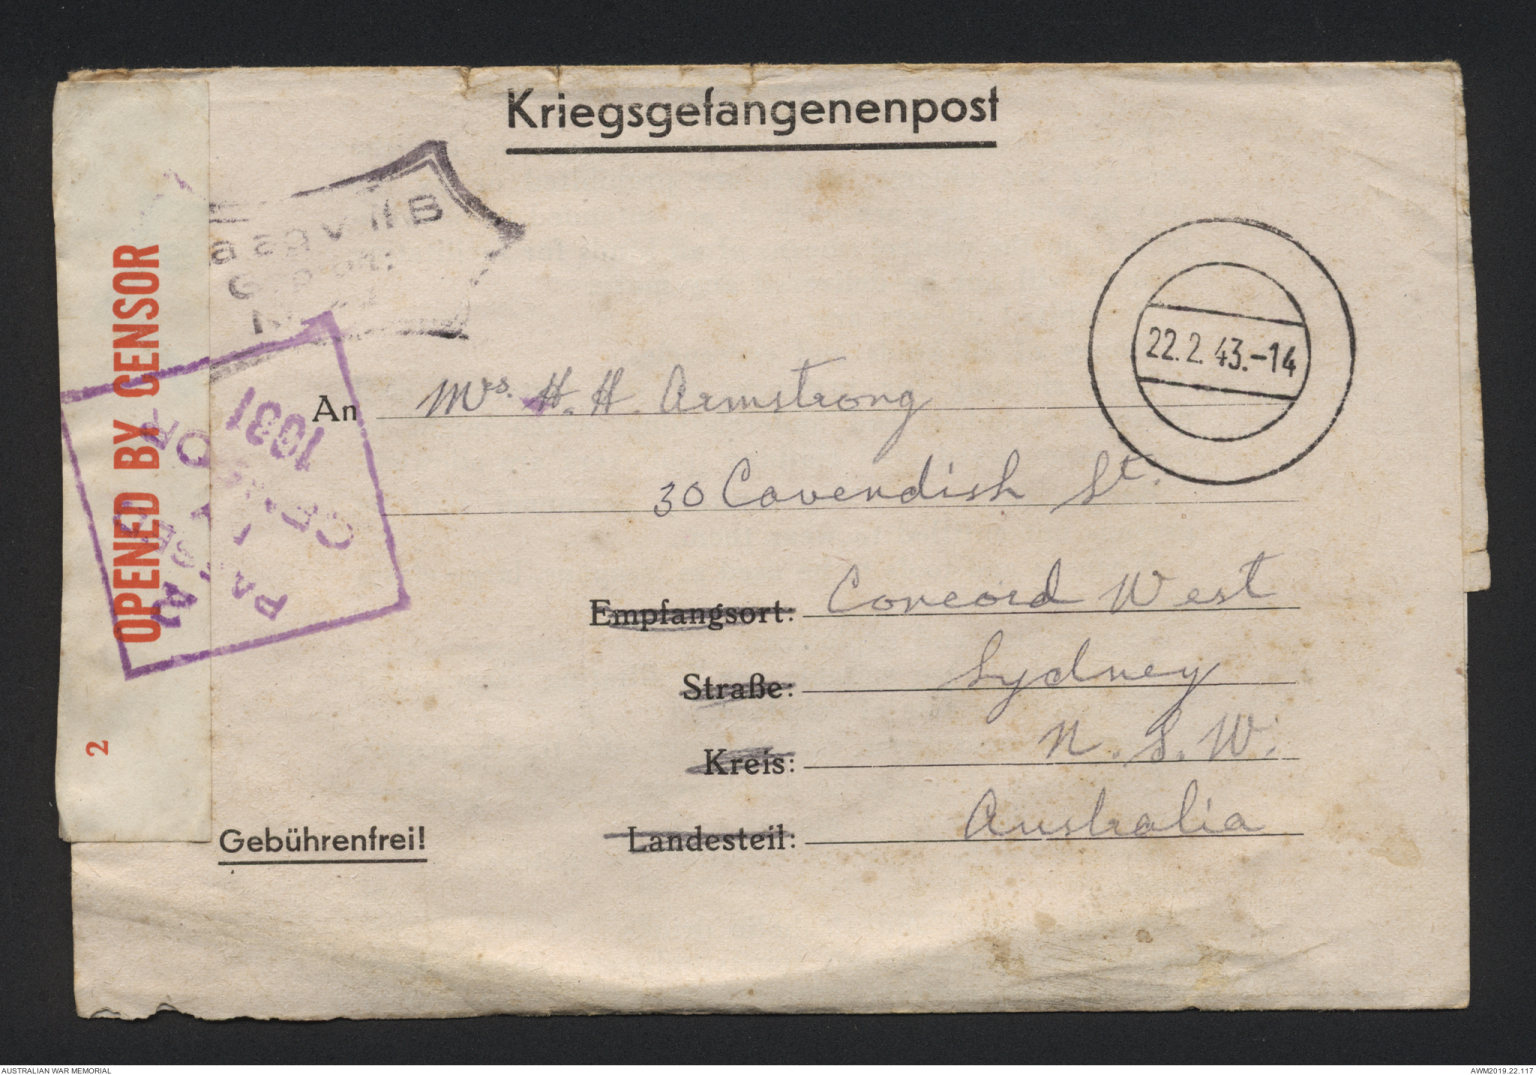 Kriegsgefangenenpost
OPENED BY CENSOR
2
PASSED
CENSOR
1031
22.2.43.-14
An Mrs. H. H. Armstrong
30 Cavendish St.
Empfangsort: Concord West
Straße: Sydney
Kreis: N.S.W.
Landesteil: Australia
Gebührenfrei!
AUSTRALIAN WAR MEMORIAL
AWM2019.22.117